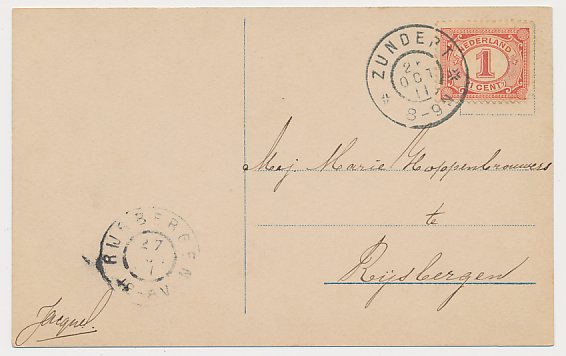 ZUNDERT
OCT
11
8-9N
NEDERLAND
1
CENT
Mej. Marie Hoppenbrouwers
te
Rijsbergen
RIJSBERGEN
27
Jacques.